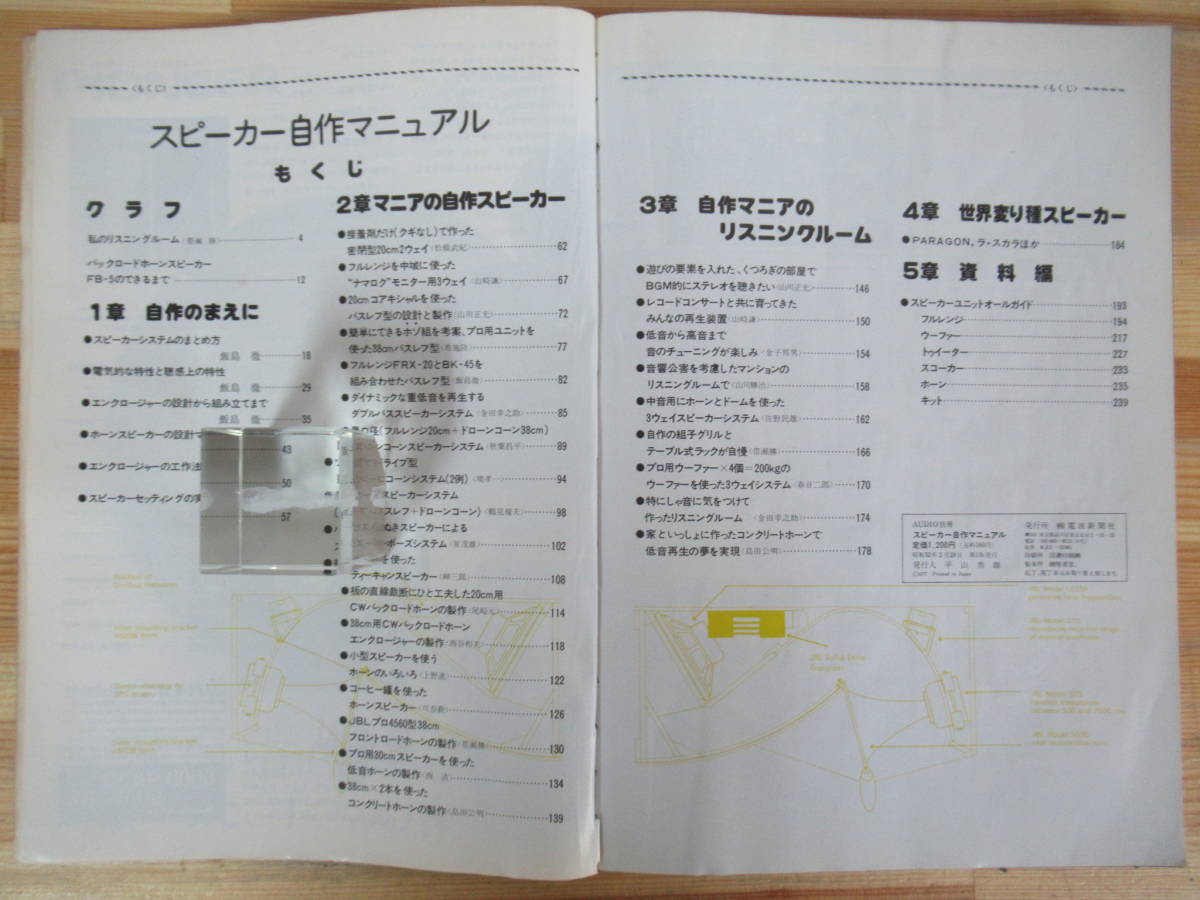 〈もくじ〉
スピーカー自作マニュアル
もくじ
グラフ
私のリスニングルーム 4
バックロードホーンスピーカー
FB-5のできるまで 12
1章 自作のまえに
●スピーカーシステムのまとめ方
飯島 徹 18
●電気的な特性と聴感上の特性
飯島 徹 29
●エンクロージャーの設計から組み立てまで
飯島 徹 35
●ホーンスピーカーの設計
43
●エンクロージャーの工作法
50
●スピーカーセッティングの実
57
2章マニアの自作スピーカー
●接着剤だけ(クギなし)で作った
密閉型20cm2ウェイ〈松橋武紀〉 62
●フルレンジを中域に使った
“ナマロク”モニター用3ウェイ〈山崎謙〉 67
●20cmコアキシャルを使った
バスレフ型の設計と製作〈山川正光〉 72
●簡単にできるホゾ組を考案、プロ用ユニットを
使った38cmバスレフ型 77
●フルレンジFRX-20とBK-45を
組み合わせたバスレフ型〈飯島徹〉 82
●ダイナミックな重低音を再生する
ダブルバススピーカーシステム〈金田幸之助〉 85
(フルレンジ20cm+ドローンコーン38cm)
ンコーンスピーカーシステム〈秋葉昌平〉 89
ライブ型
コーンシステム(2例) 94
スピーカーシステム
スレフ+ドローンコーン)〈鶴見優夫〉 98
ぬきスピーカーによる
ーボーズシステム 102
を使った
ティーキャンスピーカー 108
●板の直線裁断にひと工夫した20cm用
CWバックロードホーンの製作 114
●38cm用CWバックロードホーン
エンクロージャーの製作〈西谷和夫〉 118
●小型スピーカーを使う
ホーンのいろいろ〈上野進〉 122
●コーヒー罐を使った
ホーンスピーカー 126
●JBLプロ4560型38cm
フロントロードホーンの製作 130
●プロ用30cmスピーカーを使った
低音ホーンの製作 134
●38cm×2本を使った
コンクリートホーンの製作〈島田公明〉 139
〈もくじ〉
3章 自作マニアの
リスニングルーム
●遊びの要素を入れた、くつろぎの部屋で
BGM的にステレオを聴きたい〈山川正光〉 146
●レコードコンサートと共に育ってきた
みんなの再生装置〈山崎謙〉 150
●低音から高音まで
音のチューニングが楽しみ〈金子邦男〉 154
●音響公害を考慮したマンションの
リスニングルームで〈山川勝治〉 158
●中音用にホーンとドームを使った
3ウェイスピーカーシステム〈佐野民雄〉 162
●自作の組子グリルと
テーブル式ラックが自慢 166
●プロ用ウーファー×4個=200kgの
ウーファーを使った3ウェイシステム〈春日二郎〉 170
●特にしゃ音に気をつけて
作ったリスニングルーム 〈金田幸之助〉 174
●家といっしょに作ったコンクリートホーンで
低音再生の夢を実現〈島田公明〉 178
4章 世界変り種スピーカー
●PARAGON,ラ・スカラほか 184
5章 資料編
●スピーカーユニットオールガイド 193
フルレンジ 194
ウーファー 217
トゥイーター 227
スコーカー 233
ホーン 235
キット 239
AUDIO別冊
スピーカー自作マニュアル
定価1,200円
発行人 平山秀雄
©1977 Printed in Japan
発行所 ㈱電波新聞社